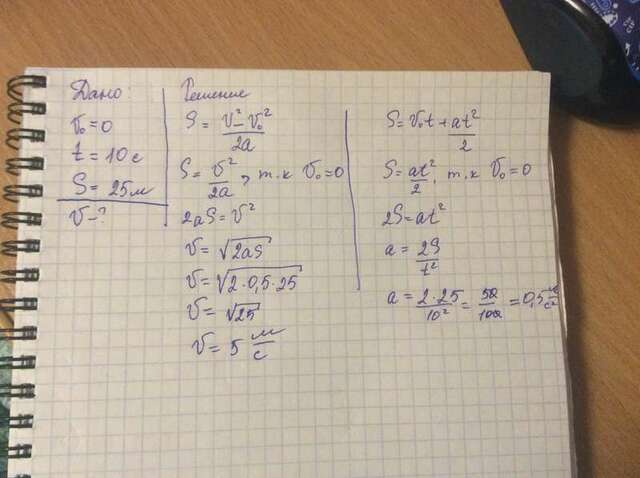 Дано:
V₀ = 0
t = 10 с
S = 25 м
V - ?
Решение
S = V² - V₀² / 2a
S = V² / 2a, т.к V₀ = 0
2aS = V²
V = √2aS
V = √2·0,5·25
V = √25
V = 5 м/с
S = V₀t + at² / 2
S = at² / 2, т.к V₀ = 0
2S = at²
a = 2S / t²
a = 2·25 / 10² = 50 / 100 = 0,5 м/с²